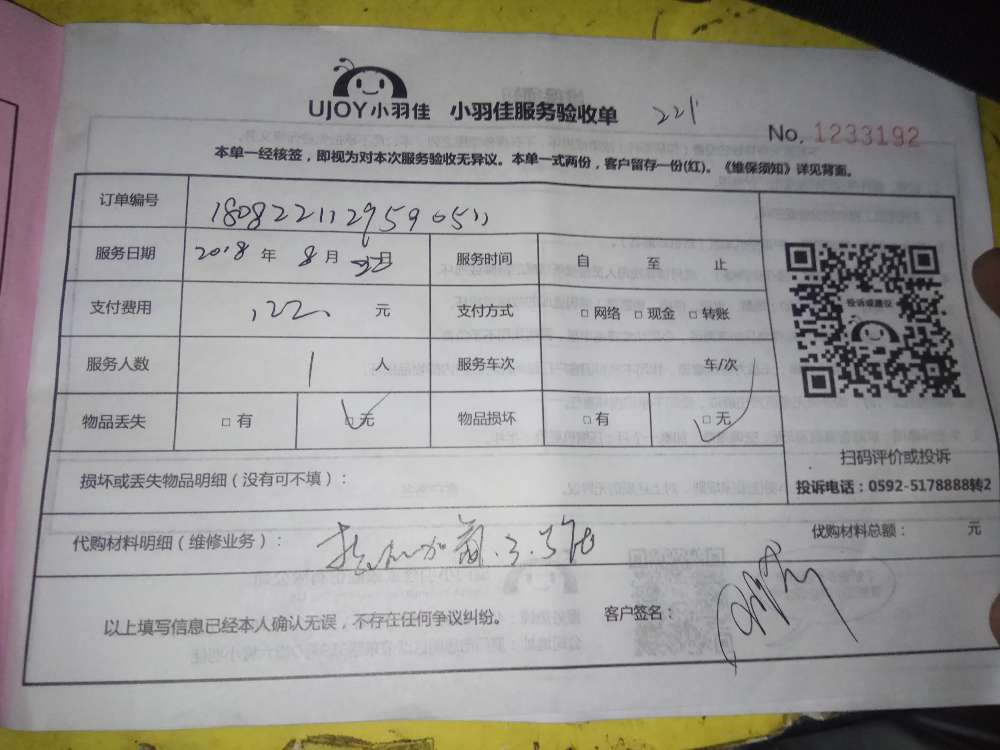 UJOY小羽佳 小羽佳服务验收单 221
No. 1233192
本单一经核签，即视为对本次服务验收无异议。本单一式两份，客户留存一份(红)。《维保须知》详见背面。
订单编号
服务日期 2018 年 8 月 日 服务时间 自 至 止
支付费用 122 元 支付方式 □ 网络 □ 现金 □ 转账
服务人数 1 人 服务车次 车/次
物品丢失 □ 有 □ 无 物品损坏 □ 有 □ 无
投诉或建议
扫码评价或投诉
投诉电话：0592-5178888转2
损坏或丢失物品明细（没有可不填）：
代购材料明细（维修业务）： 代购材料总额： 元
以上填写信息已经本人确认无误，不存在任何争议纠纷。 客户签名：